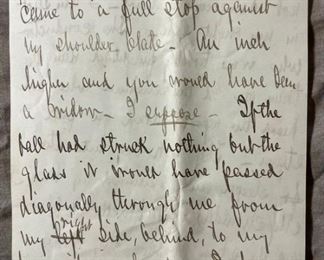 came to a full stop against
my shoulder blade – An inch
higher and you would have been
a widow – I suppose – If the
ball had struck nothing but the
glass it would have passed
diagonally through me from
right
my left side, behind, to my